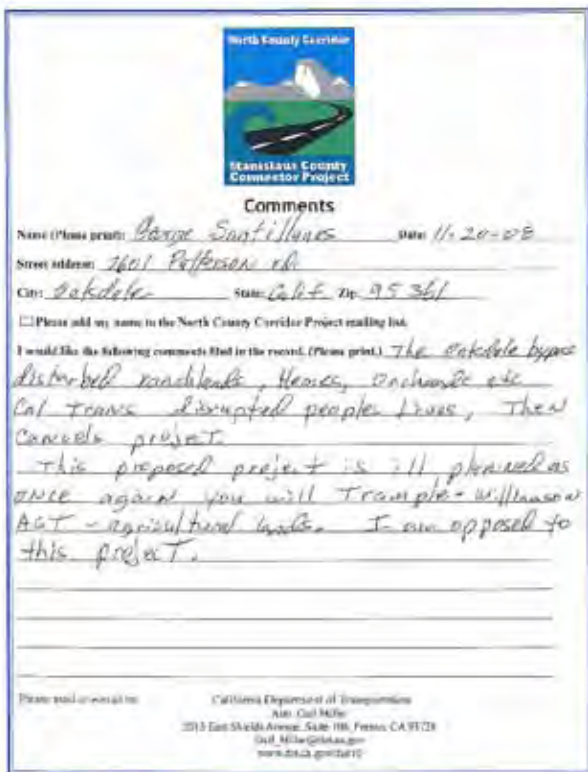 North County Corridor
Stanislaus County
Connector Project
Comments
Name (Please print): George Santillanes Date: 11-20-08
Street address: 7601 Patterson rd.
City: Oakdale State: Calif. Zip: 95361
☐ Please add my name to the North County Corridor Project mailing list.
I would like the following comments filed in the record. (Please print.) The Oakdale bypass
disturbed ranchlands, Homes, Orchards etc
Cal Trans disrupted peoples Lives, Then
Cancels project.
This proposed project is ill planned as
once again you will Trample - Williamson
ACT - agricultural lands. I am opposed to
this project.
Please mail or email to:
California Department of Transportation
Attn: Gail Miller
2015 East Shields Avenue, Suite 100, Fresno, CA 93726
Gail_Miller@dot.ca.gov